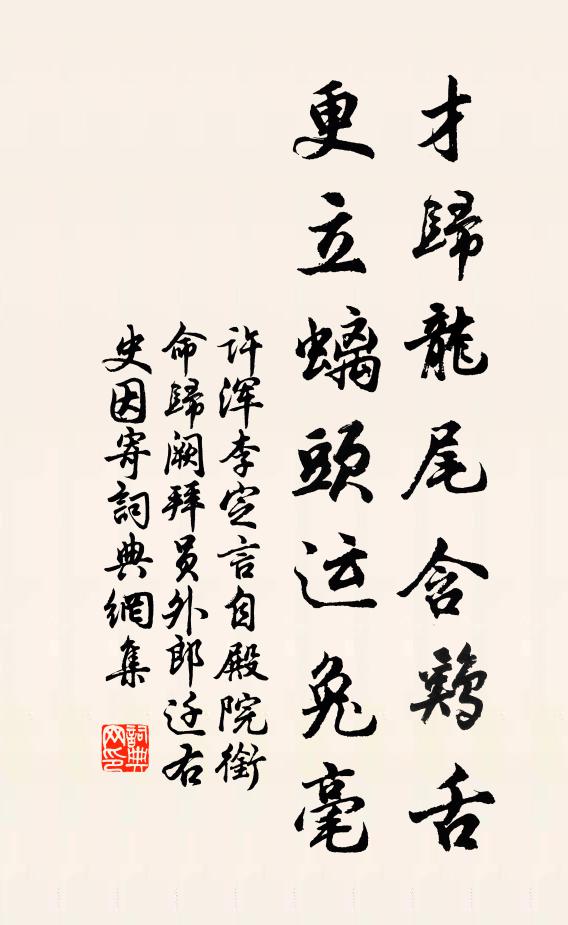 才歸龍尾含鷄舌
更立螭頭运兔毫
许渾李定言自殿院衔
命歸阙拜员外郎迁右
史因寄詞典網集
詞典网印